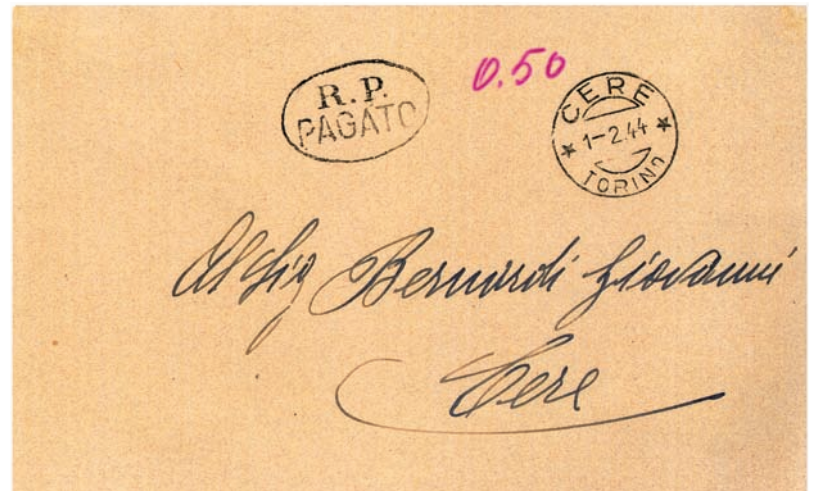 R.P.
PAGATO
0.50
CERE
1-2.44
TORINO
Al Sig Bernardi Giovanni
Cere